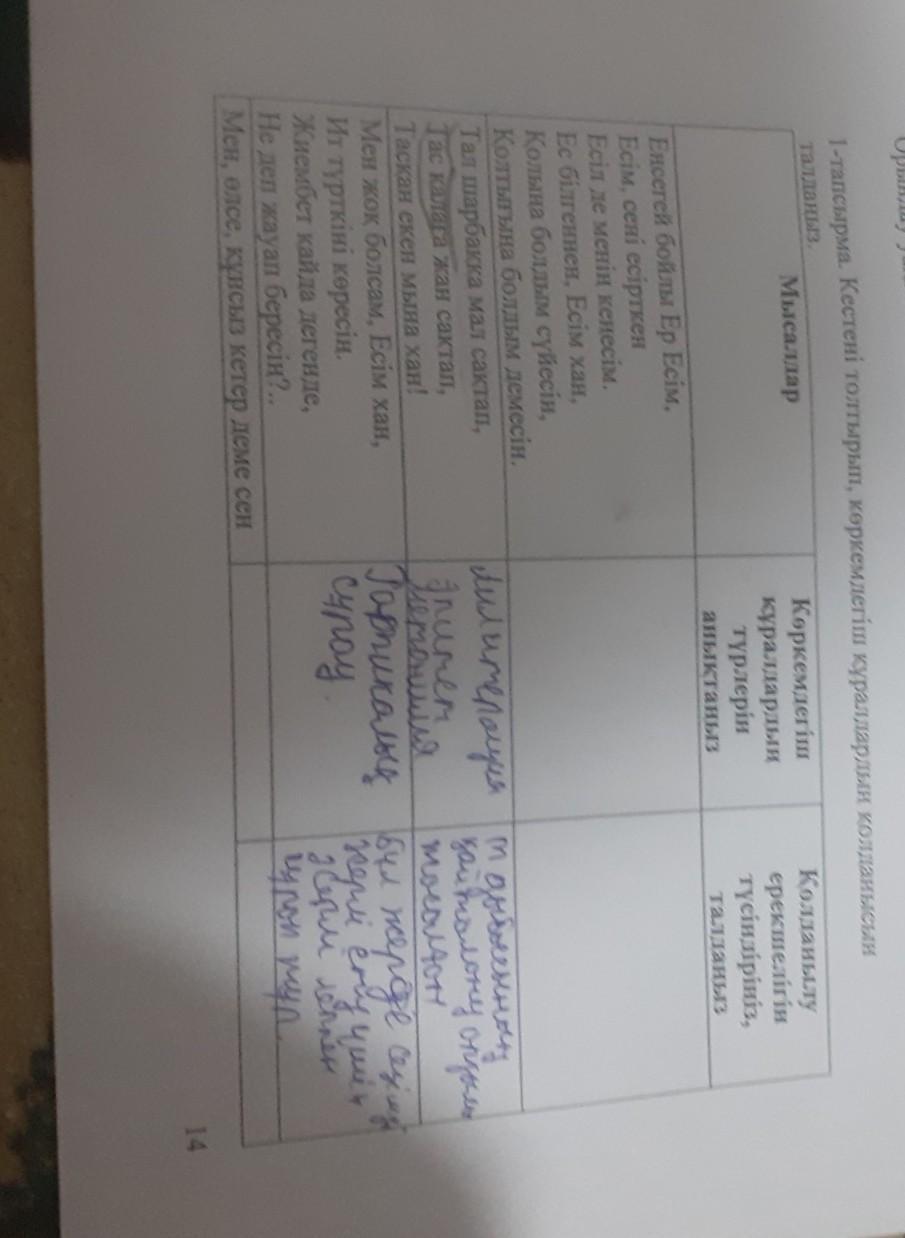 1-тапсырма. Кестені толтырып, көркемдегіш құралдардың қолданысын
талдаңыз.
Мысалдар
Көркемдегіш
құралдардың
түрлерін
анықтаңыз
Қолданылу
ерекшелігін
түсіндіріңіз,
талдаңыз
Еңсегей бойлы Ер Есім,
Есім, сені есірткен
Есіл де менің кеңесім.
Ес білгеннен, Есім хан,
Қолыңа болдым сүйесін,
Қолтығыңа болдым демесін.
Тал шарбаққа мал сақтап,
Тас қалаға жан сақтап,
Тасқан екен мына хан!
Аллитерация
Эпитет
Метонимия
т дыбысының
қайталану арқылы
Мен жоқ болсам, Есім хан,
Ит түрткіні көресің.
Жиембет қайда дегенде,
Не деп жауап бересің?..
Риторикалық
сұрау.
бұл жерде
үшін
сұрап тұр.
Мен, өлсе, құнсыз кетер деме сен
14